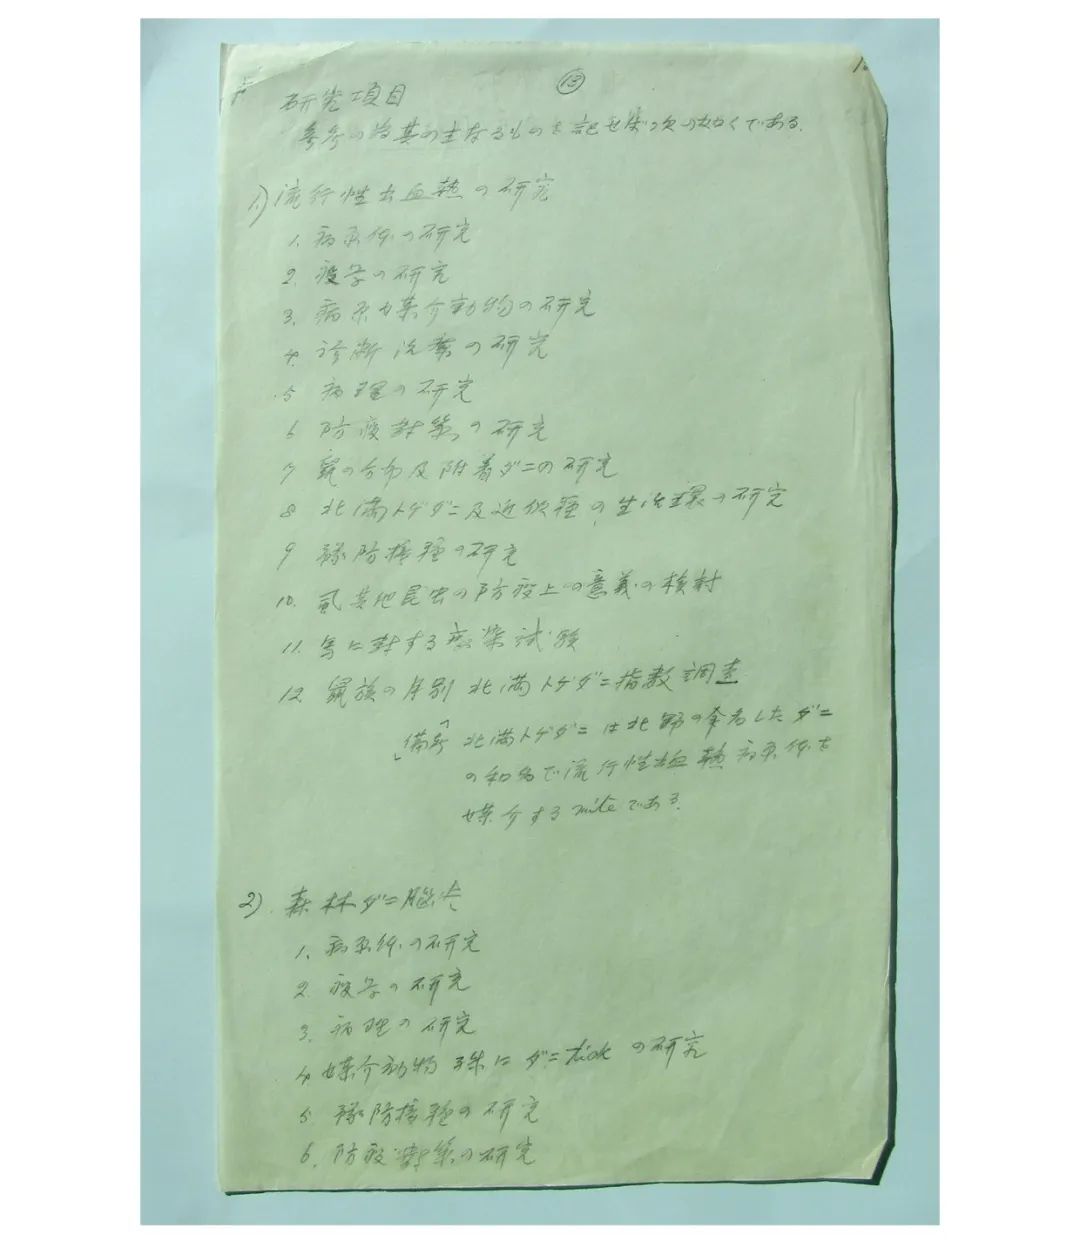 ⑬
研究項目
参考の為其の主なるものを記せば次の如くである.
1.) 流行性出血熱の研究
1. 病原体の研究
2. 疫学の研究
3. 病原媒介動物の研究
4. 診断治療の研究
5 病理の研究
6 防疫対策の研究
7 鼠の分布及附着ダニの研究
8 北満トゲダニ及近似種の生活環の研究
9 豫防接種の研究
10. 虱其他昆虫の防疫上の意義の検討
11. 馬に対する感染試験
12 鼠族の月別北満トゲダニ指数調査
備考 北満トゲダニは北野の命名したダニ
の和名で流行性出血熱病原体を
媒介するmiteである.
2). 森林ダニ脳炎
1. 病原体の研究
2. 疫学の研究
3. 病理の研究
4 媒介動物 殊にダニtickの研究
5. 豫防接種の研究
6. 防疫対策の研究